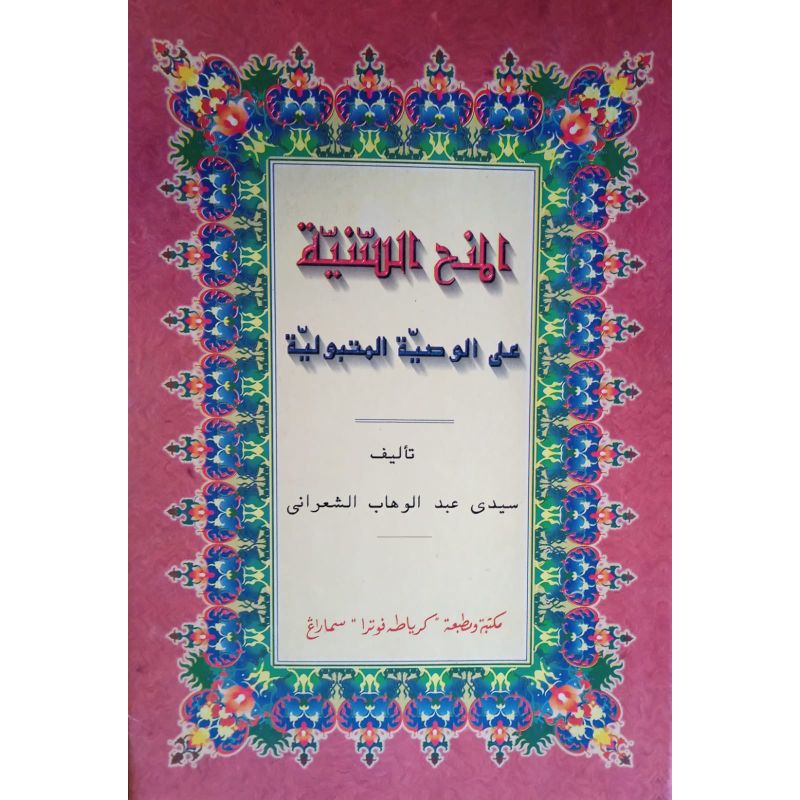 المنح السّنيّة
على الوصيّة المتبوليّة
تأليف
سيدى عبد الوهاب الشعرانى
مكتبة ومطبعة "كرياطه فوترا" سماراڠ